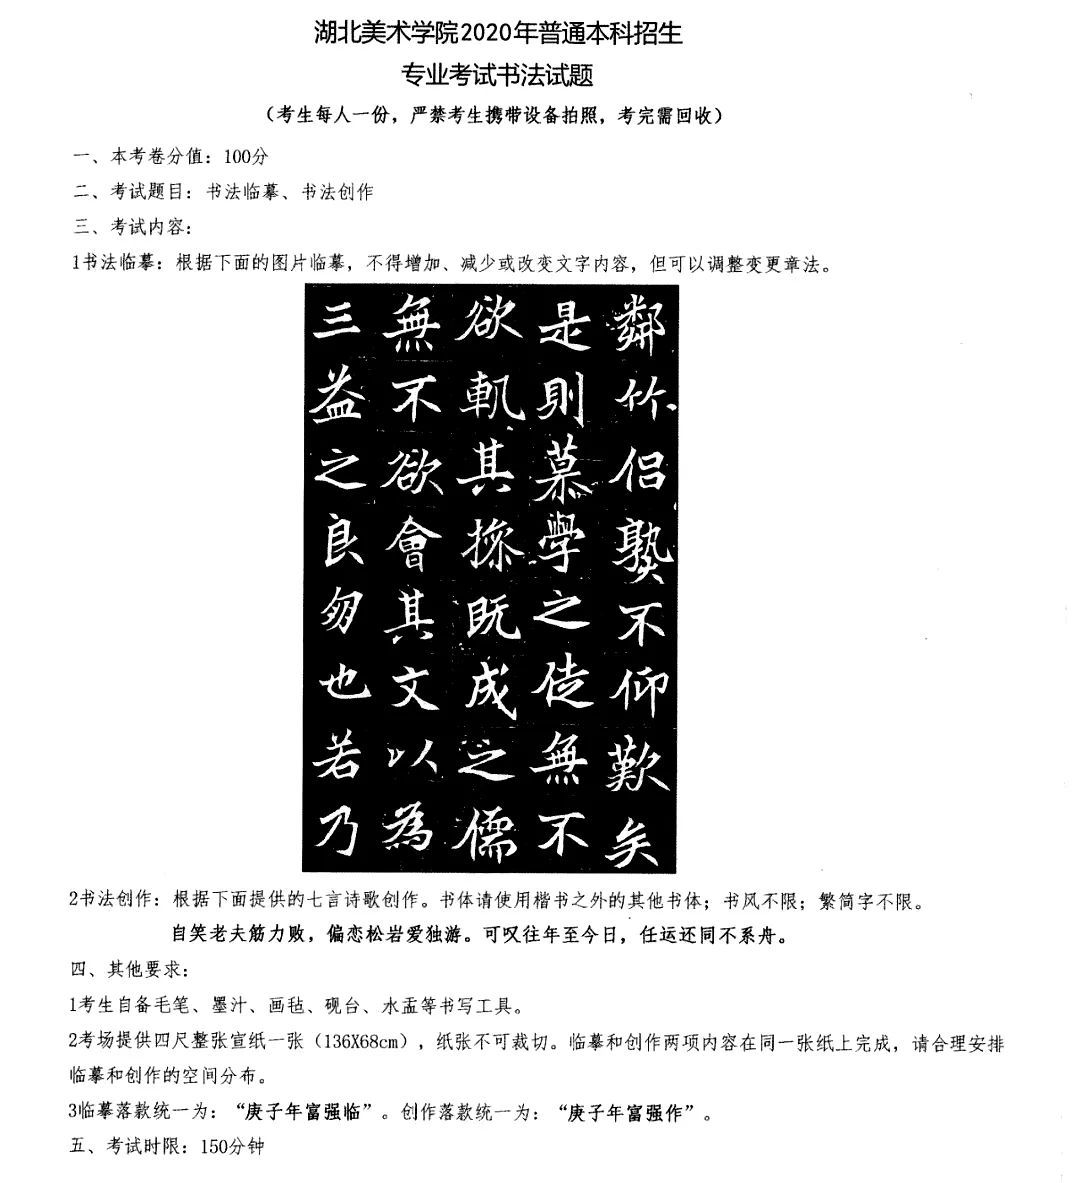 湖北美术学院2020年普通本科招生
专业考试书法试题
（考生每人一份，严禁考生携带设备拍照，考完需回收）
一、本考卷分值：100分
二、考试题目：书法临摹、书法创作
三、考试内容：
1书法临摹：根据下面的图片临摹，不得增加、减少或改变文字内容，但可以调整变更章法。
竹侣不仰歎矣
是則慕學之徒無不
欲軌其操既成之儒
無不欲會其文以為
三益之良朋也若乃
2书法创作：根据下面提供的七言诗歌创作。书体请使用楷书之外的其他书体；书风不限；繁简字不限。
自笑老夫筋力败，偏恋松岩爱独游。可叹往年至今日，任运还同不系舟。
四、其他要求：
1考生自备毛笔、墨汁、画毡、砚台、水盂等书写工具。
2考场提供四尺整张宣纸一张（136X68cm），纸张不可裁切。临摹和创作两项内容在同一张纸上完成，请合理安排
临摹和创作的空间分布。
3临摹落款统一为：“庚子年富强临”。创作落款统一为：“庚子年富强作”。
五、考试时限：150分钟